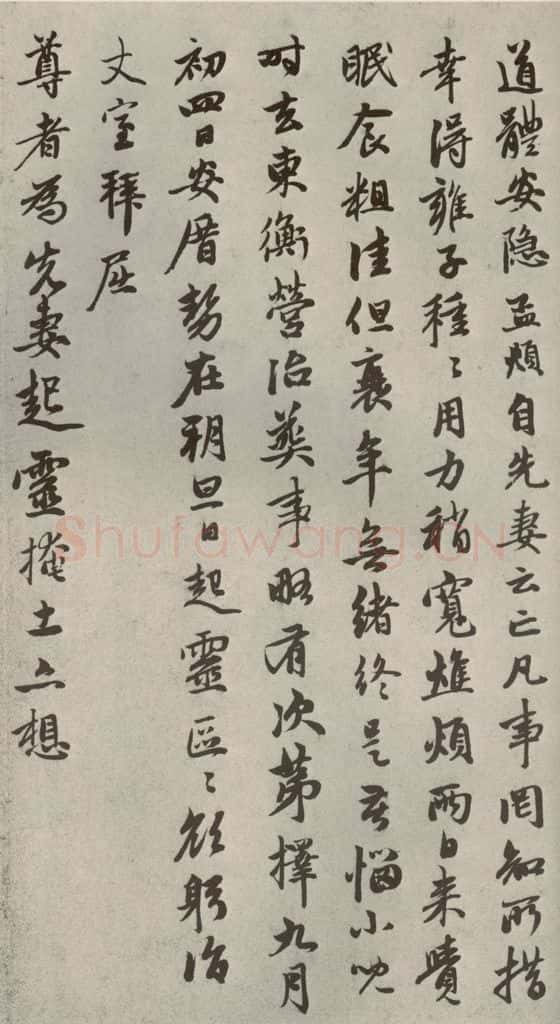 道體安隱孟頫自先妻云亡凡事罔知所措
幸得雍子種〻用力稍寬焦煩兩日來賾
眠食粗佳但衰年無緒終是苦惱小兒
時去東衡營治葬事略有次第擇九月
初四日安厝勢在朔旦日起靈區〻欲躬詣
丈室拜屈
尊者為先妻起靈掩土亦想
Shufawang.CN